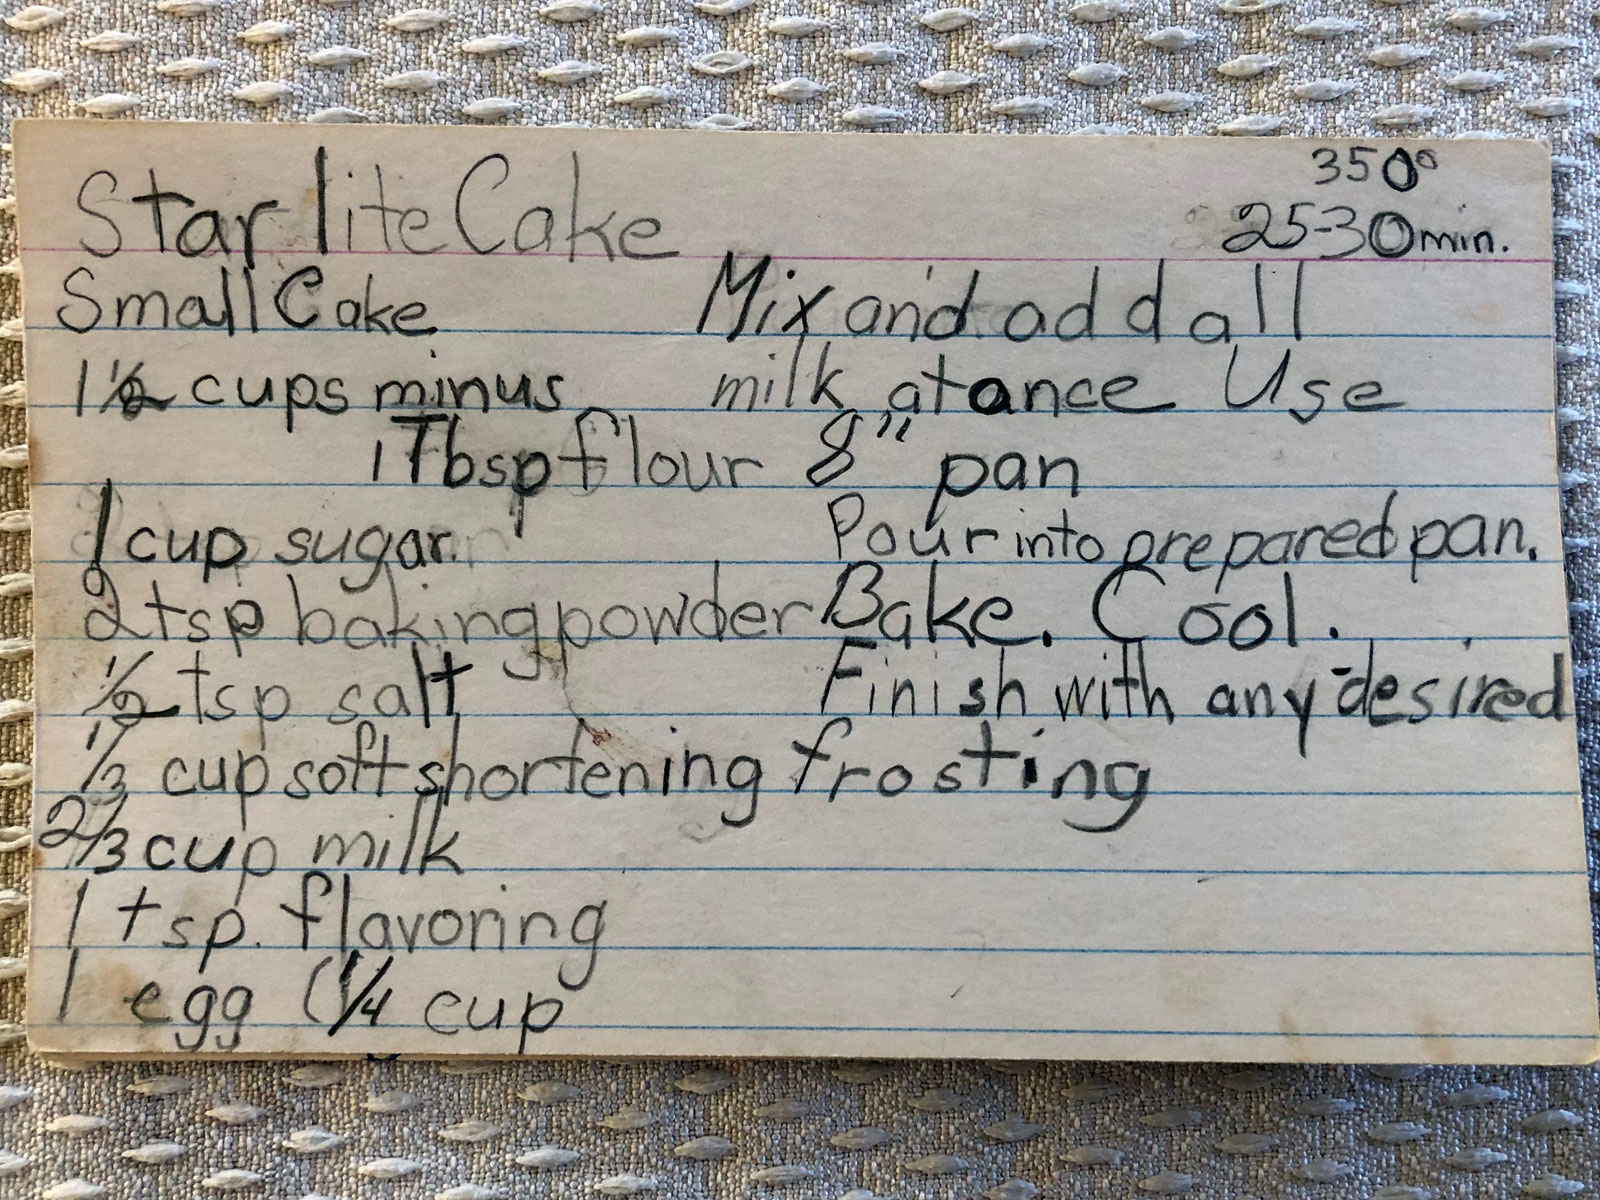 Starlite Cake
350°
25-30 min.
Small Cake
1 1/2 cups minus
1 Tbsp flour
1 cup sugar.
2 tsp baking powder
1/2 tsp salt
1/3 cup soft shortening
2/3 cup milk
1 tsp. flavoring
1 egg (1/4 cup
Mix and add all
milk at ance Use
8" pan
Pour into prepared pan.
Bake. Cool.
Finish with any desired
frosting